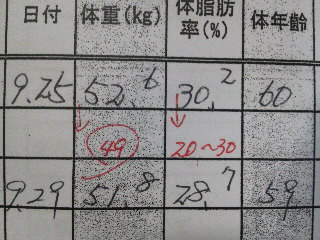 日付 体重(kg) 体脂肪率(%) 体年齢
9.25 52.6 30.2 60
↓ 49 ↓ 20~30
9.29 51.8 28.7 59